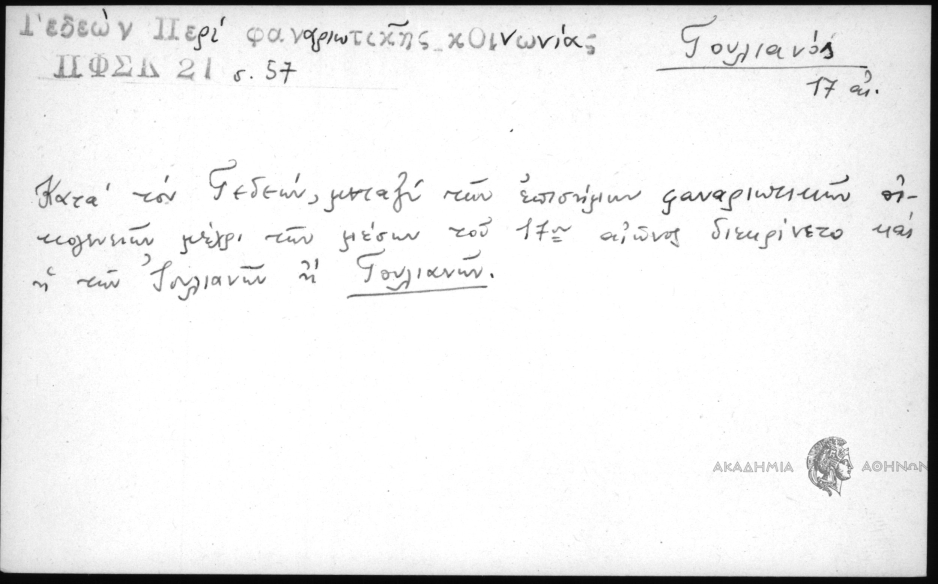 Γεδεών Περί φαναριωτικῆς κοινωνίας
ΠΦΣΚ 21 σ. 57
Γουλιανός
17 αἰ.
Κατά τόν Γεδεών, μεταξύ τῶν ἐπισήμων φαναριωτικῶν οἰ-
κογενειῶν μέχρι τῶν μέσων τοῦ 17ου αἰῶνος διεκρίνετο καί
ἡ τῶν Ἰουλιανῶν ἤ Γουλιανῶν.
ΑΚΑΔΗΜΙΑ ΑΘΗΝΩΝ